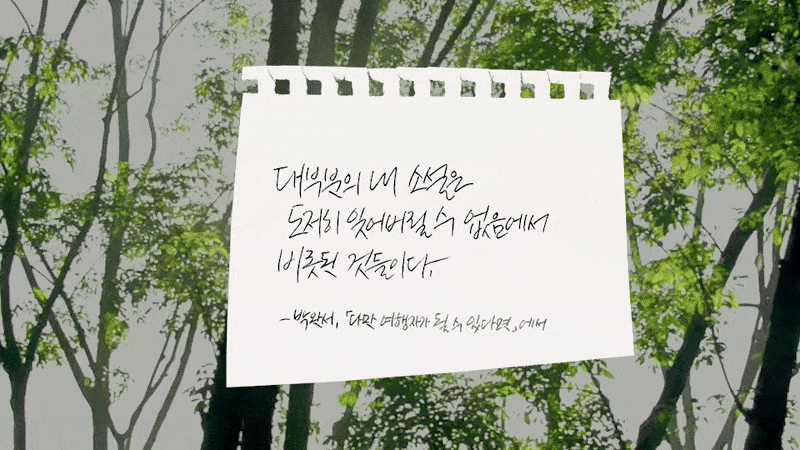 대부분의 내 소설은
도저히 잊어버릴 수 없음에서
비롯된 것들이다.
-박완서, 「다만 여행자가 될 수 있다면」에서